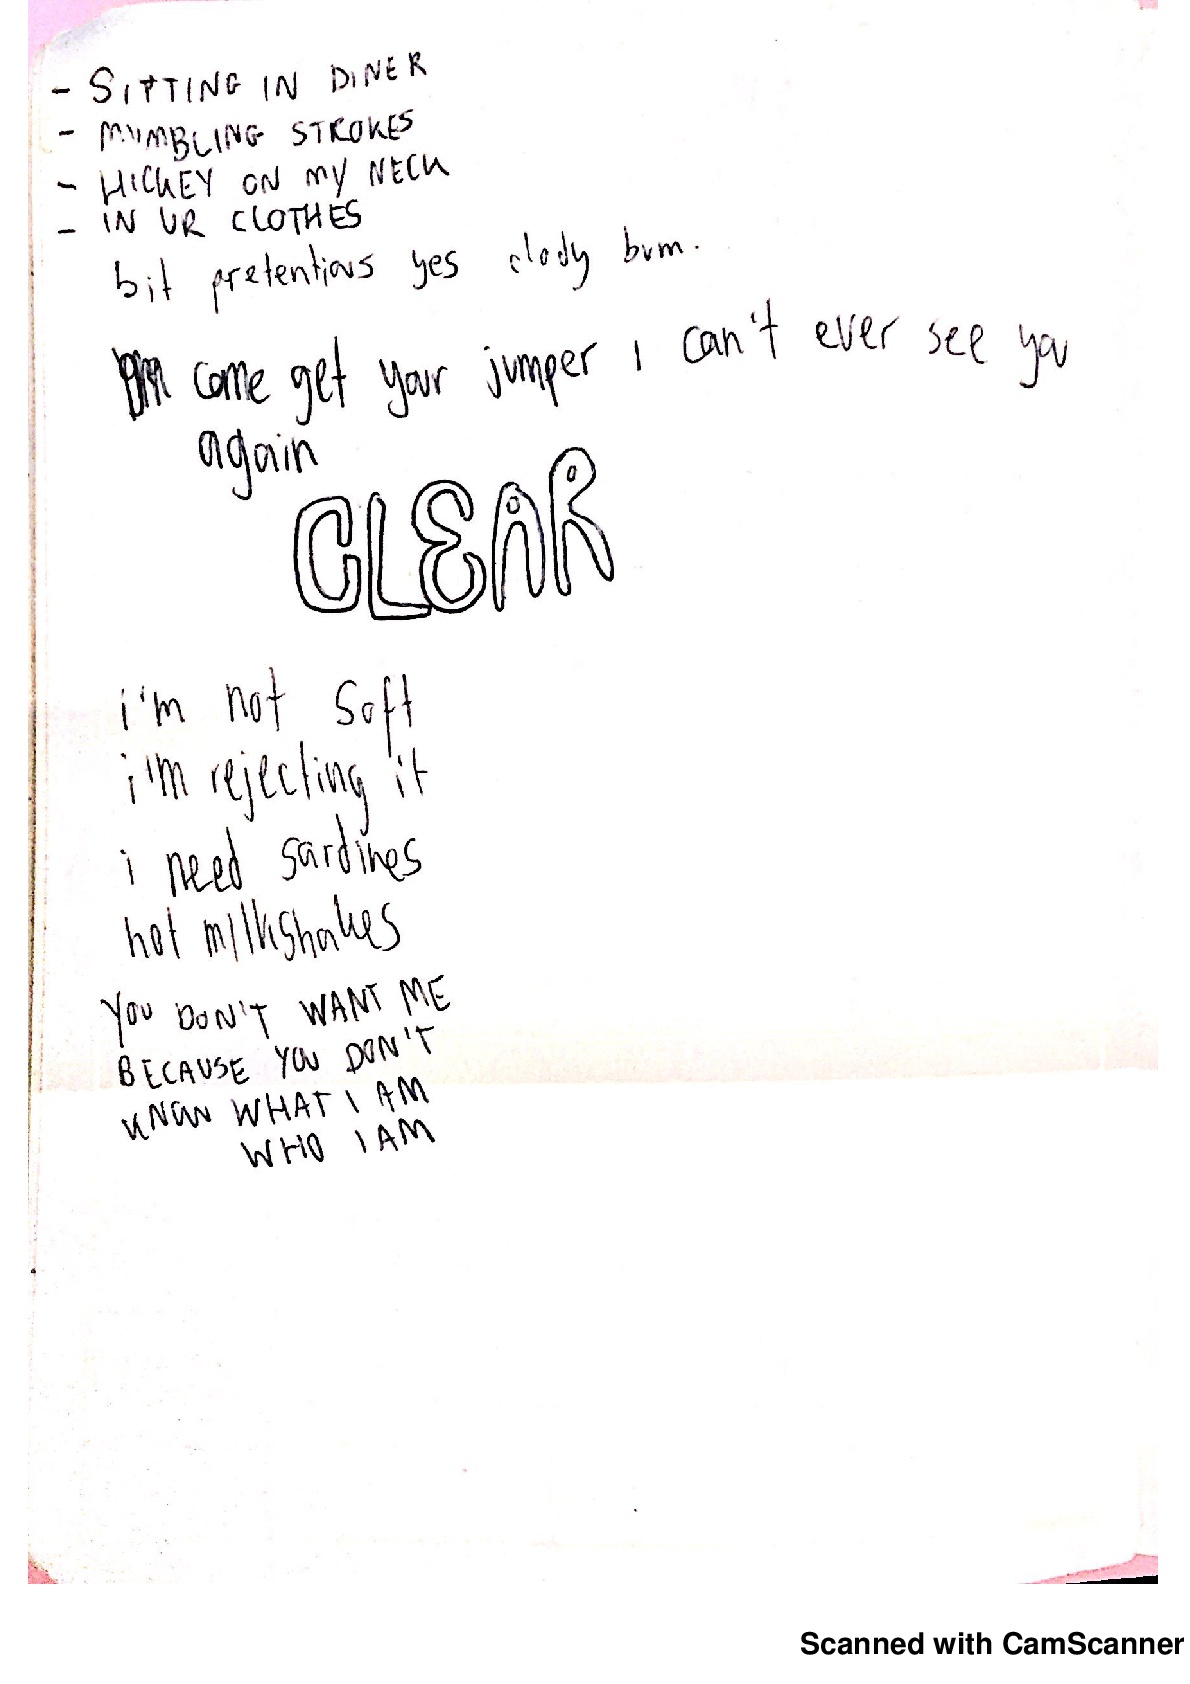 - SITTING IN DINER
- MUMBLING STROKES
- HICKEY ON MY NECK
- IN UR CLOTHES
bit pretentious yes clody bum.
come get your jumper i can't ever see you
again
CLEAR
i'm not soft
i'm rejecting it
i need sardines
hot milkshakes
YOU DON'T WANT ME
BECAUSE YOU DON'T
KNOW WHAT I AM
WHO I AM
Scanned with CamScanner